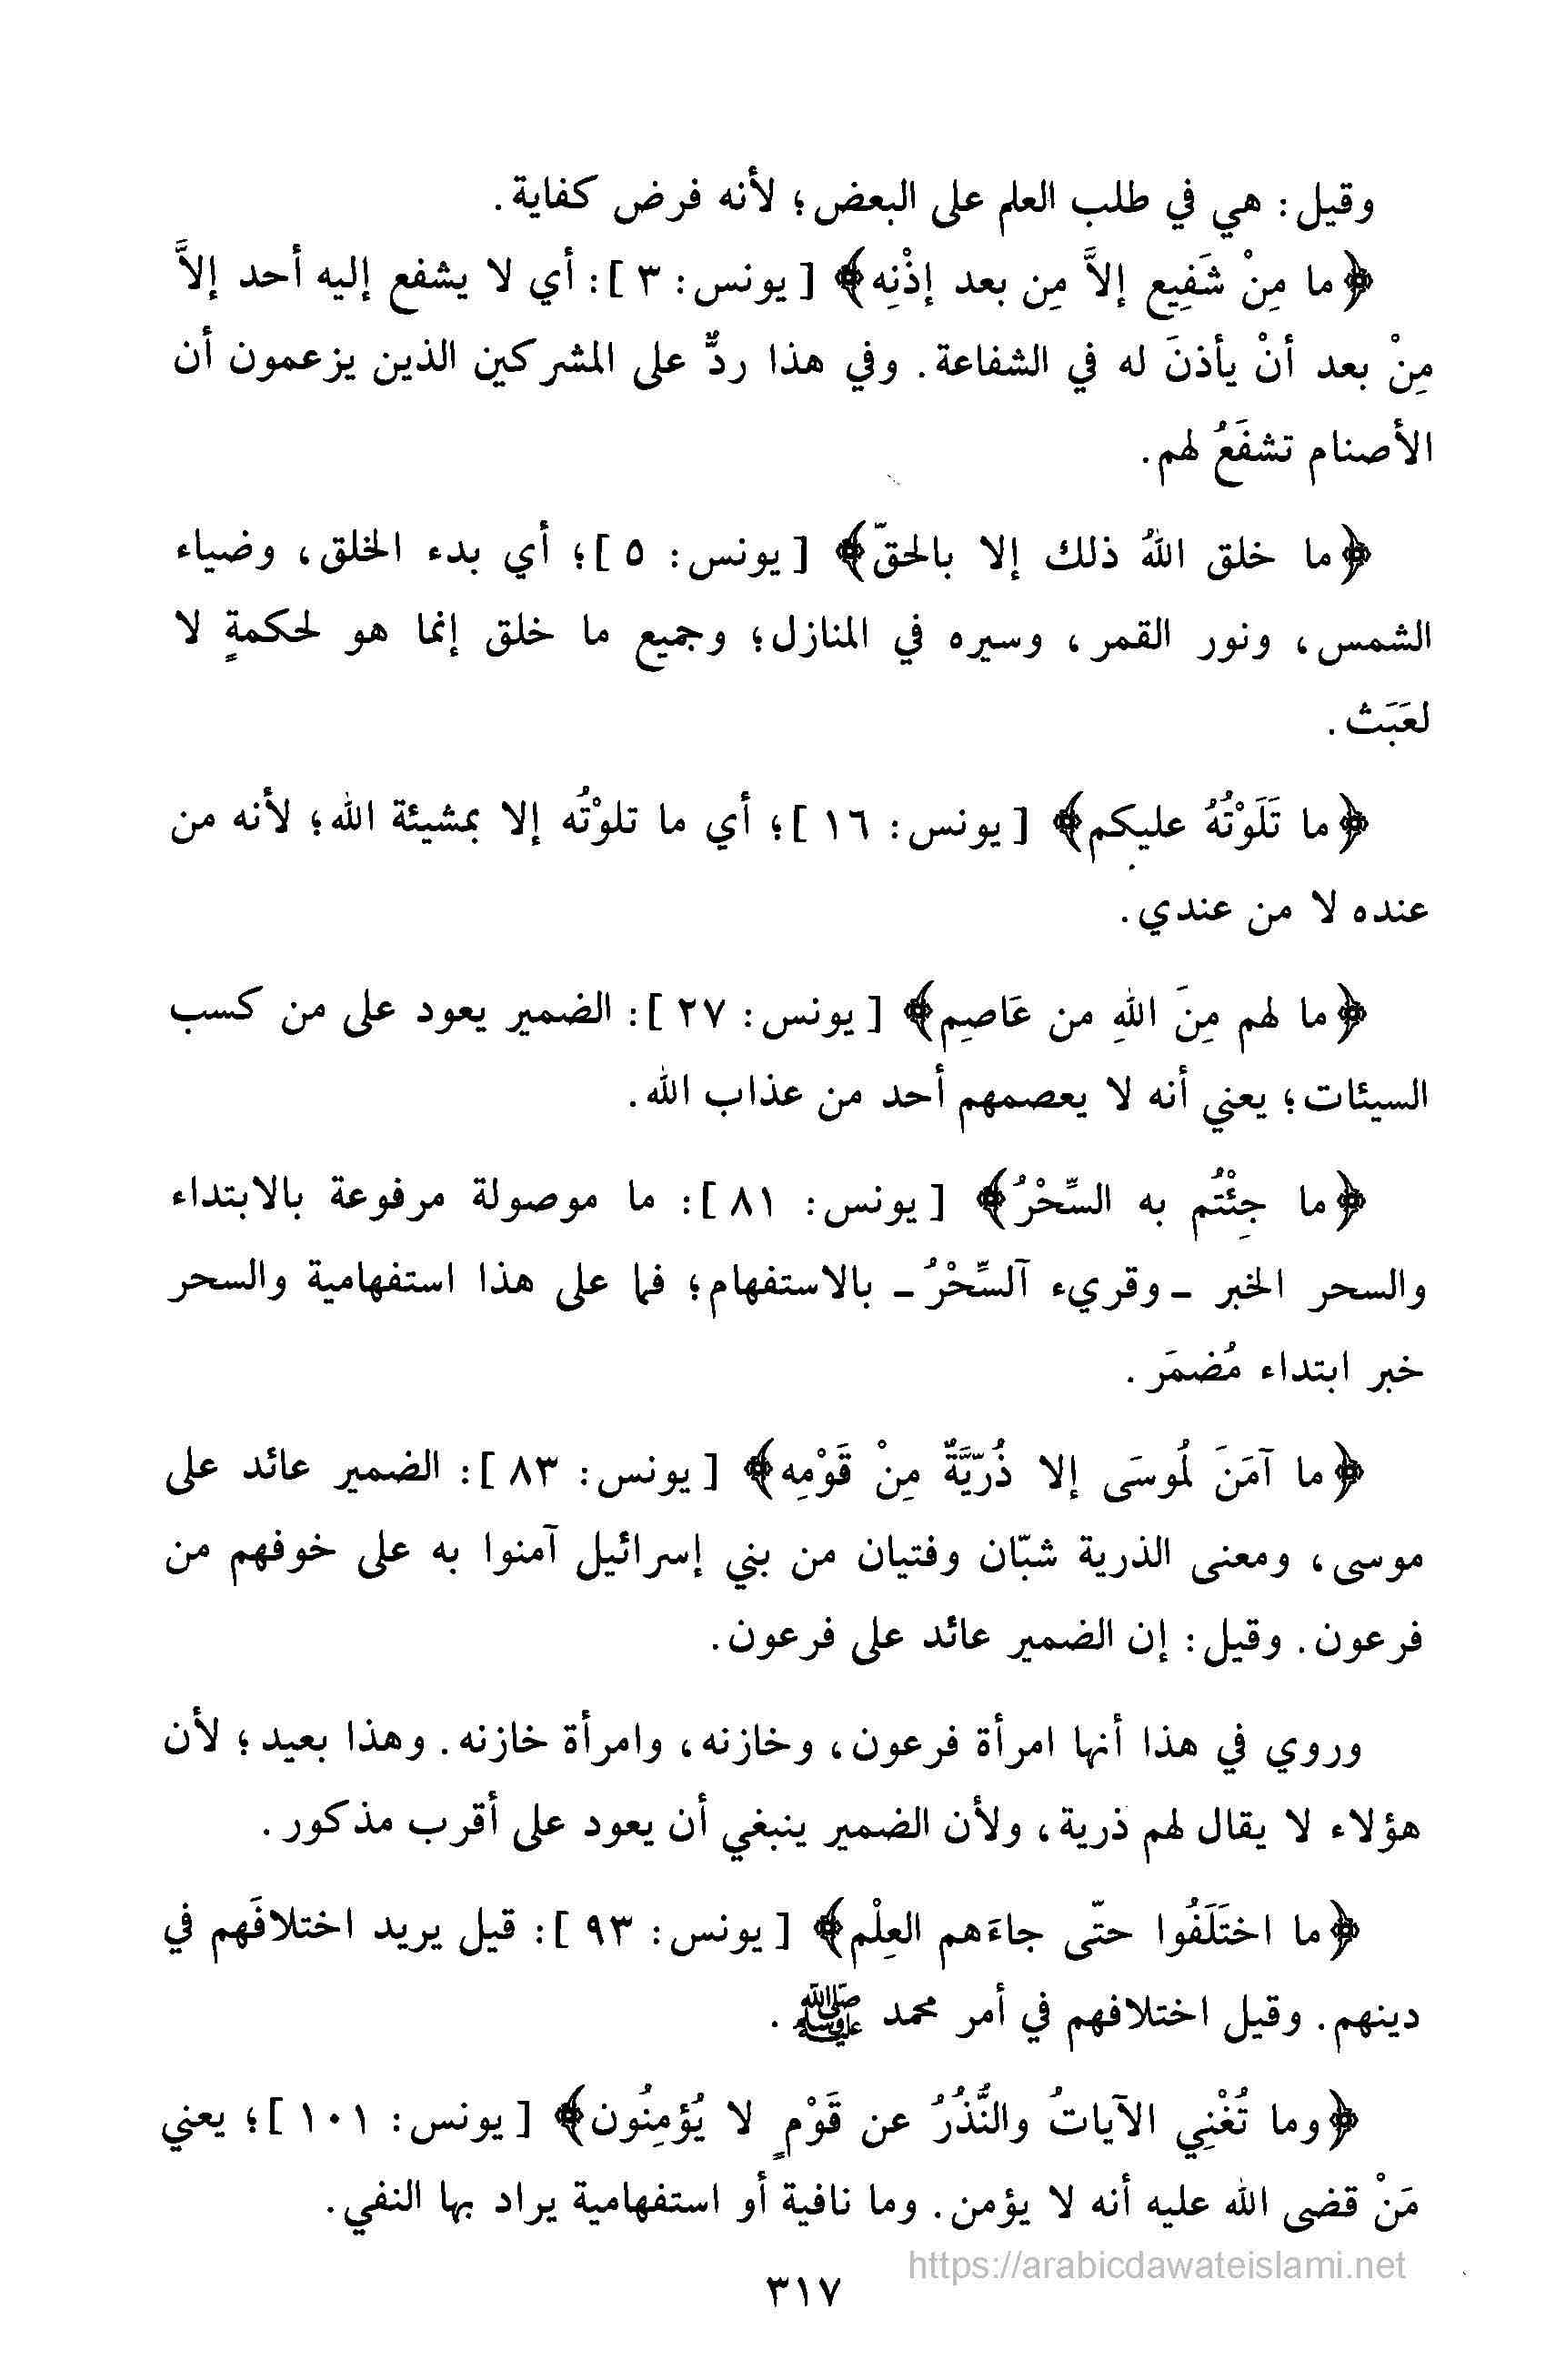 وقيل: هي في طلب العلم على البعض؛ لأنه فرض كفاية.
﴿ما مِنْ شَفِيع إلاَّ مِن بعد إذْنِه﴾ [يونس: ٣]: أي لا يشفع إليه أحد إلاَّ
مِنْ بعد أنْ يأذنَ له في الشفاعة. وفي هذا ردٌّ على المشركين الذين يزعمون أن
الأصنام تشفَعُ لهم.
﴿ما خلق اللهُ ذلك إلا بالحقّ﴾ [يونس: ٥]؛ أي بدء الخلق، وضياء
الشمس، ونور القمر، وسيره في المنازل؛ وجميع ما خلق إنما هو لحكمةٍ لا
لعَبَث.
﴿ما تَلَوْتُهُ عليكم﴾ [يونس: ١٦]؛ أي ما تلوْتُه إلا بمشيئة الله؛ لأنه من
عنده لا من عندي.
﴿ما لهم مِنَ اللهِ من عَاصِم﴾ [يونس: ٢٧]: الضمير يعود على من كسب
السيئات؛ يعني أنه لا يعصمهم أحد من عذاب الله.
﴿ما جِئْتُم به السِّحْرُ﴾ [يونس: ٨١]: ما موصولة مرفوعة بالابتداء
والسحر الخبر ـ وقريء آلسِّحْرُ ـ بالاستفهام؛ فما على هذا استفهامية والسحر
خبر ابتداء مُضمَر.
﴿ما آمَنَ لُموسَى إلا ذُرّيَّةٌ مِنْ قَوْمِه﴾ [يونس: ٨٣]: الضمير عائد على
موسى، ومعنى الذرية شبّان وفتيان من بني إسرائيل آمنوا به على خوفهم من
فرعون. وقيل: إن الضمير عائد على فرعون.
وروي في هذا أنها امرأة فرعون، وخازنه، وامرأة خازنه. وهذا بعيد؛ لأن
هؤلاء لا يقال لهم ذرية، ولأن الضمير ينبغي أن يعود على أقرب مذكور.
﴿ما اختَلَفُوا حتّى جاءَهم العِلْم﴾ [يونس: ٩٣]: قيل يريد اختلافَهم في
دينهم. وقيل اختلافهم في أمر محمد ﷺ.
﴿وما تُغْنِي الآياتُ والنُّذُرُ عن قَوْمٍ لا يُؤمِنُون﴾ [يونس: ١٠١]؛ يعني
مَنْ قضى الله عليه أنه لا يؤمن. وما نافية أو استفهامية يراد بها النفي.
https://arabicdawateislami.net
٣١٧